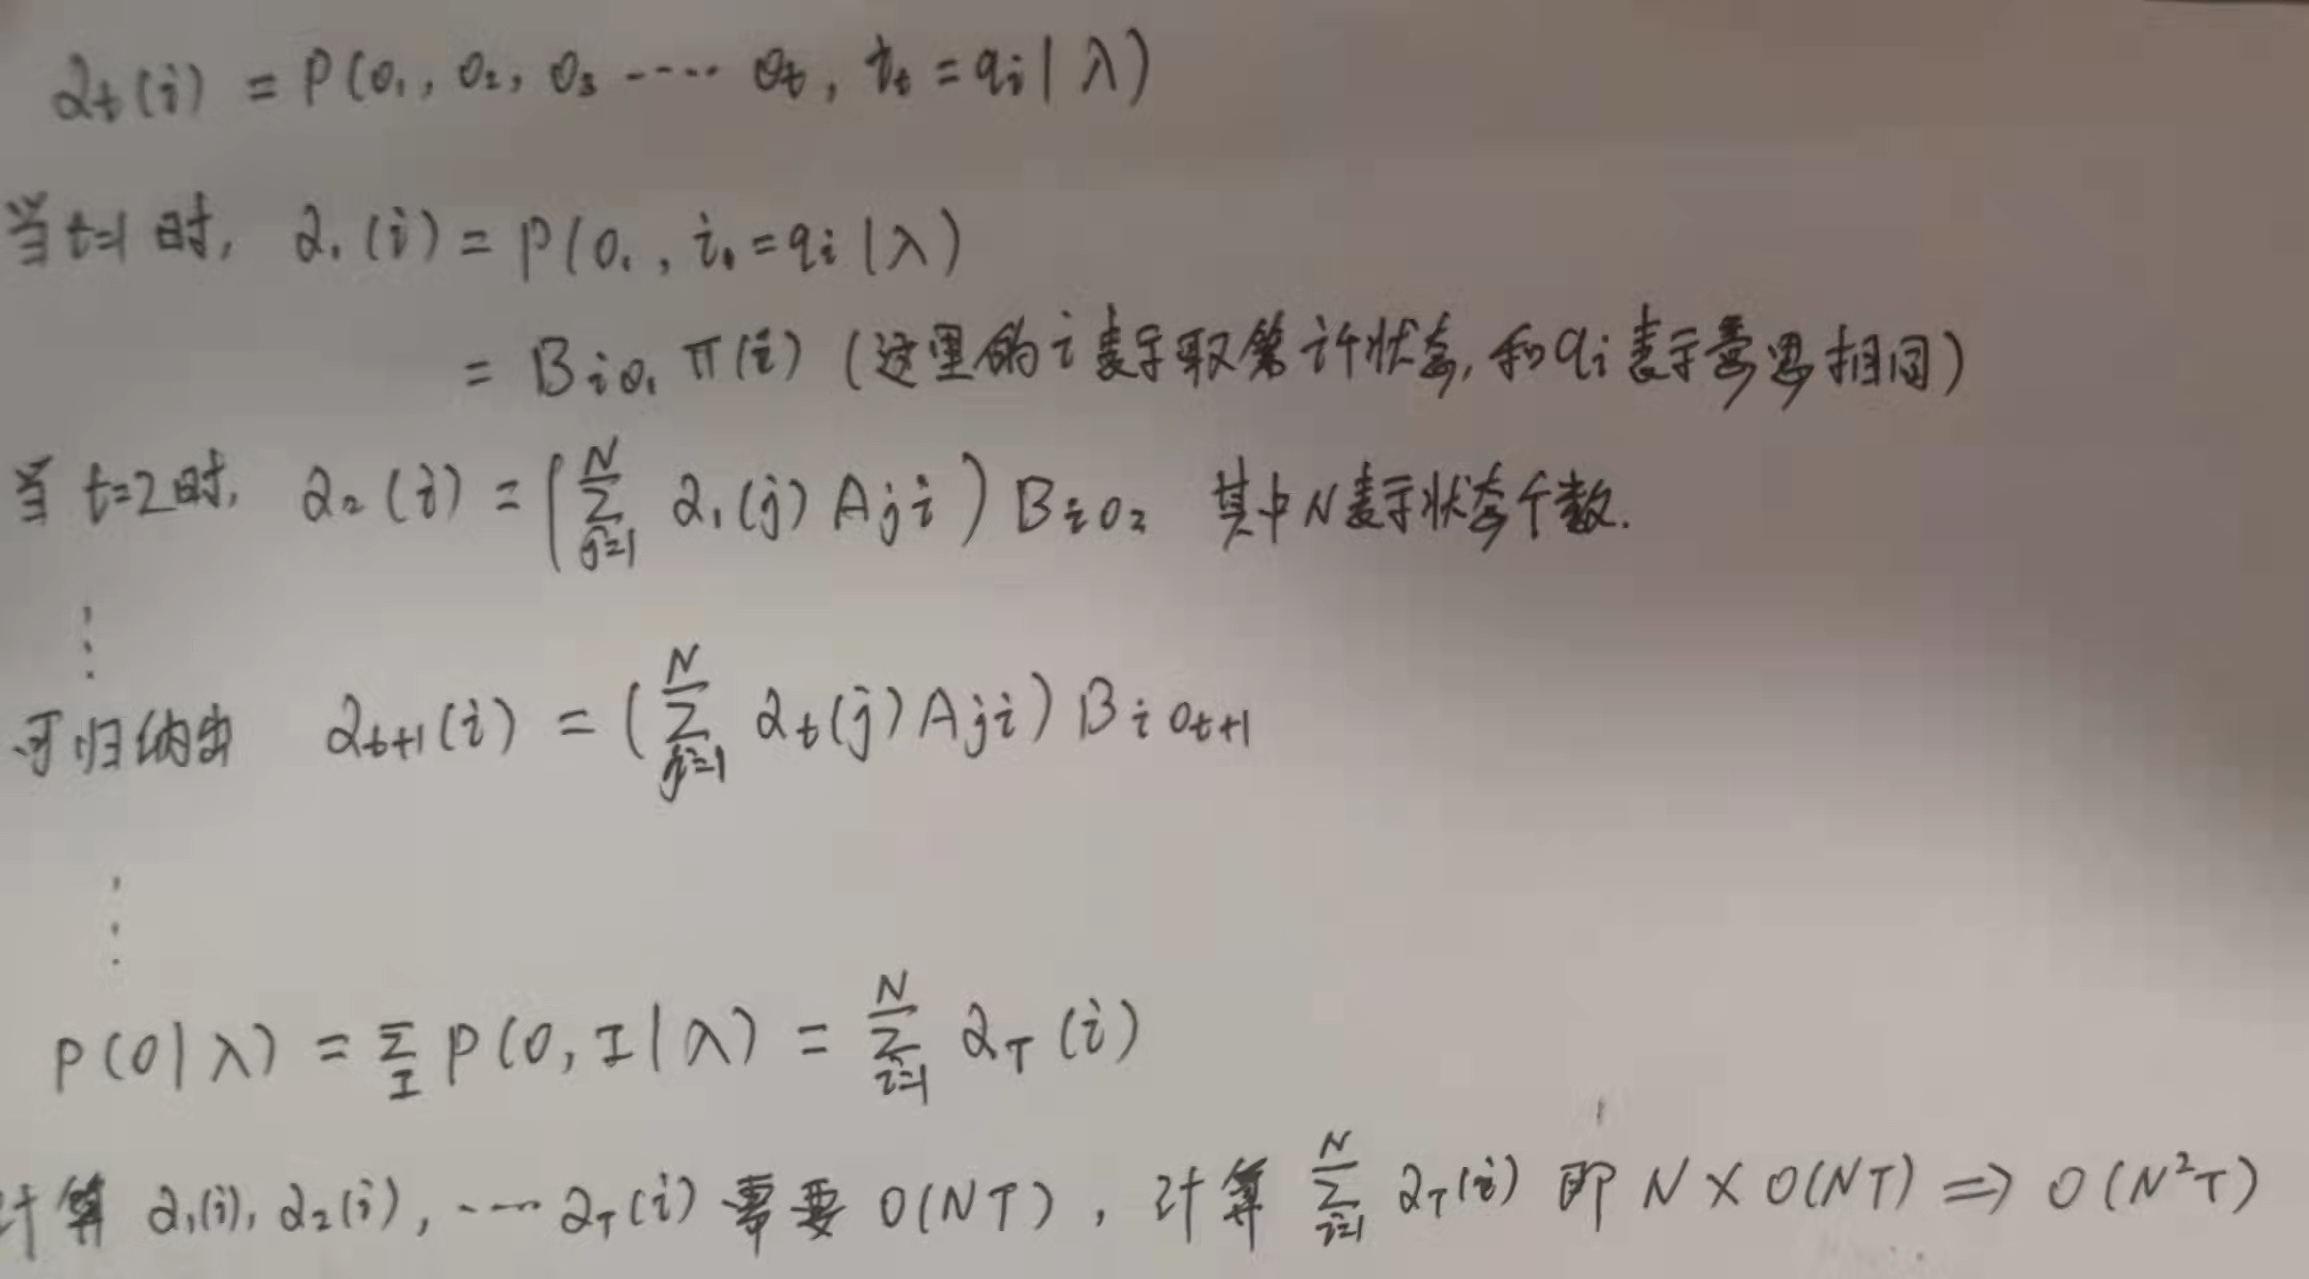 α_t(i) = P(o₁, o₂, o₃ ····· o_t, i_t = q_i | λ)
当t=1时, α₁(i) = P(o₁, i₁ = q_i | λ)
= B_{i o₁} π(i) (这里的i表示取第i个状态, 和q_i表示意思相同)
当t=2时, α₂(i) = (∑_{j=1}^{N} α₁(j) A_{ji}) B_{i o₂} 其中N表示状态个数.
⋮
可归纳出 α_{t+1}(i) = (∑_{j=1}^{N} α_t(j) A_{ji}) B_{i o_{t+1}}
⋮
P(O|λ) = ∑_I P(O, I|λ) = ∑_{i=1}^{N} α_T(i)
计算 α₁(i), α₂(i), ····· α_T(i) 需要 O(NT), 计算 ∑_{i=1}^{N} α_T(i) 即 N × O(NT) ⇒ O(N²T)